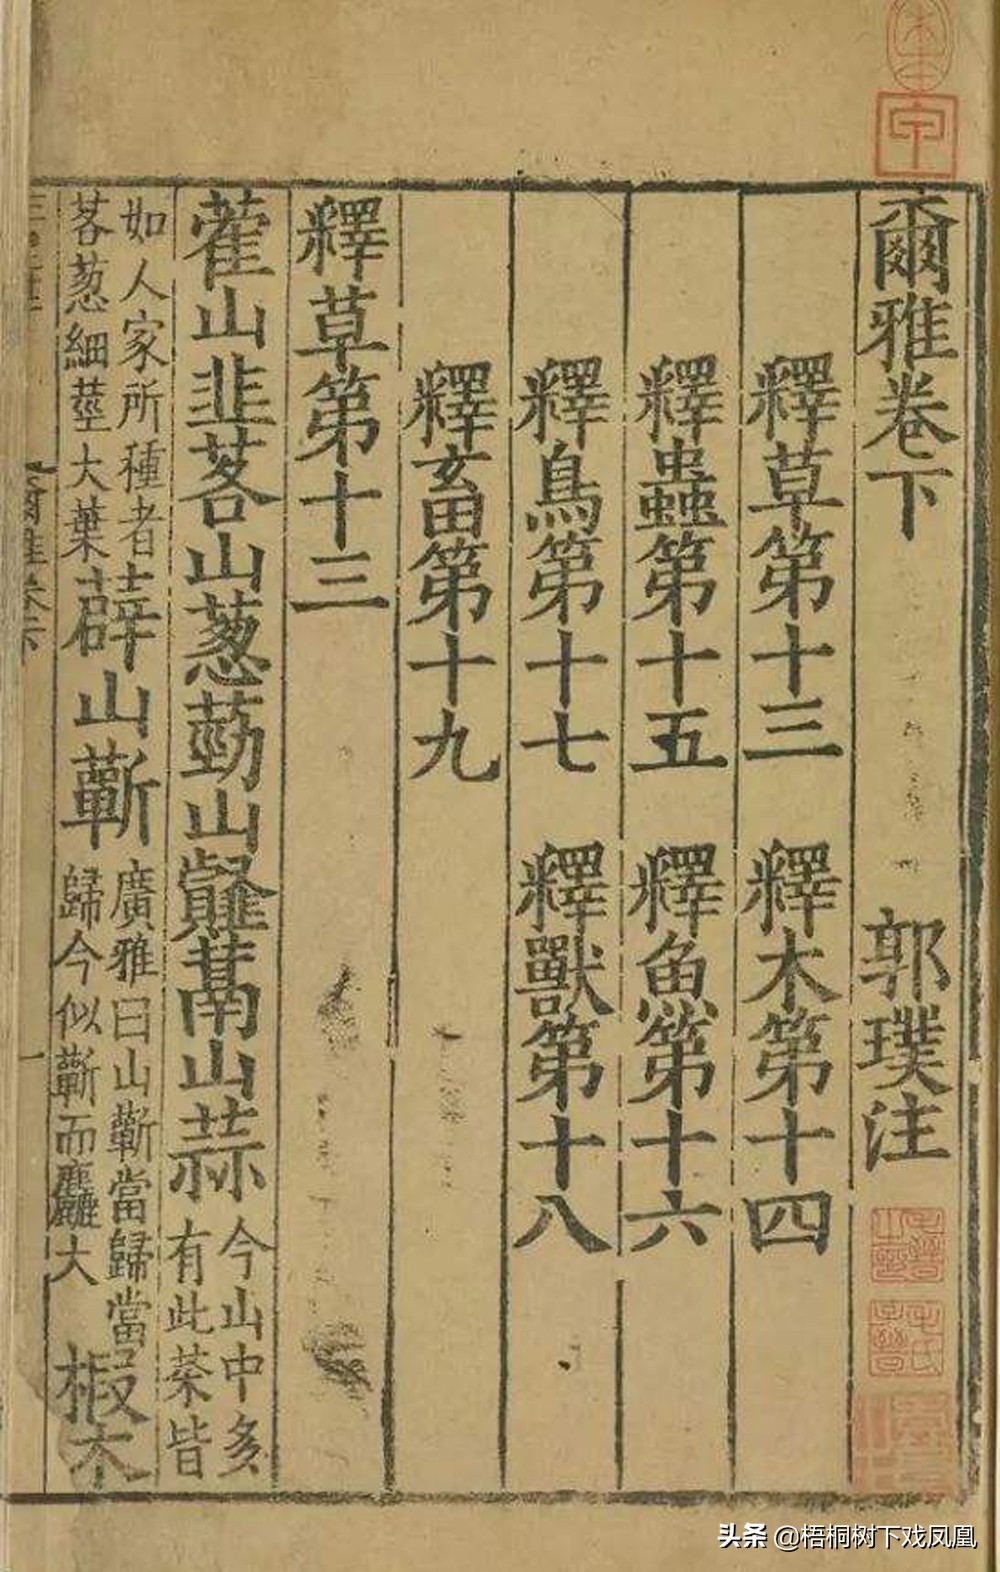 爾雅卷下 郭璞注
釋草第十三 釋木第十四
釋蟲第十五 釋魚第十六
釋鳥第十七 釋獸第十八
釋畜第十九
釋草第十三
藿山韭茖山葱葝山䪥蒚山蒜 今山中多
有此菜皆
如人家所種者
茖葱細莖大葉
薜山蘄
廣雅曰山蘄當歸當
歸今似蘄而麤大
椵木
爾雅卷下
一
头条 @梧桐树下戏凤凰